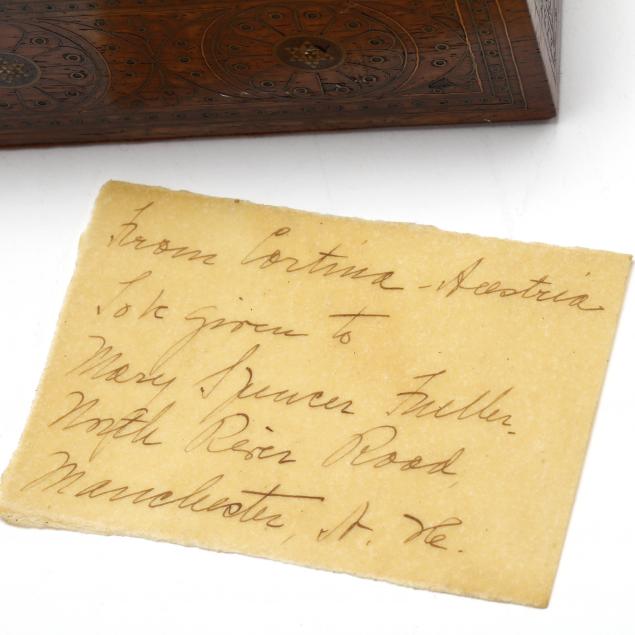 From Cortina - Austria
To be given to
Mary Spencer Fuller.
North River Road,
Manchester, N. H.